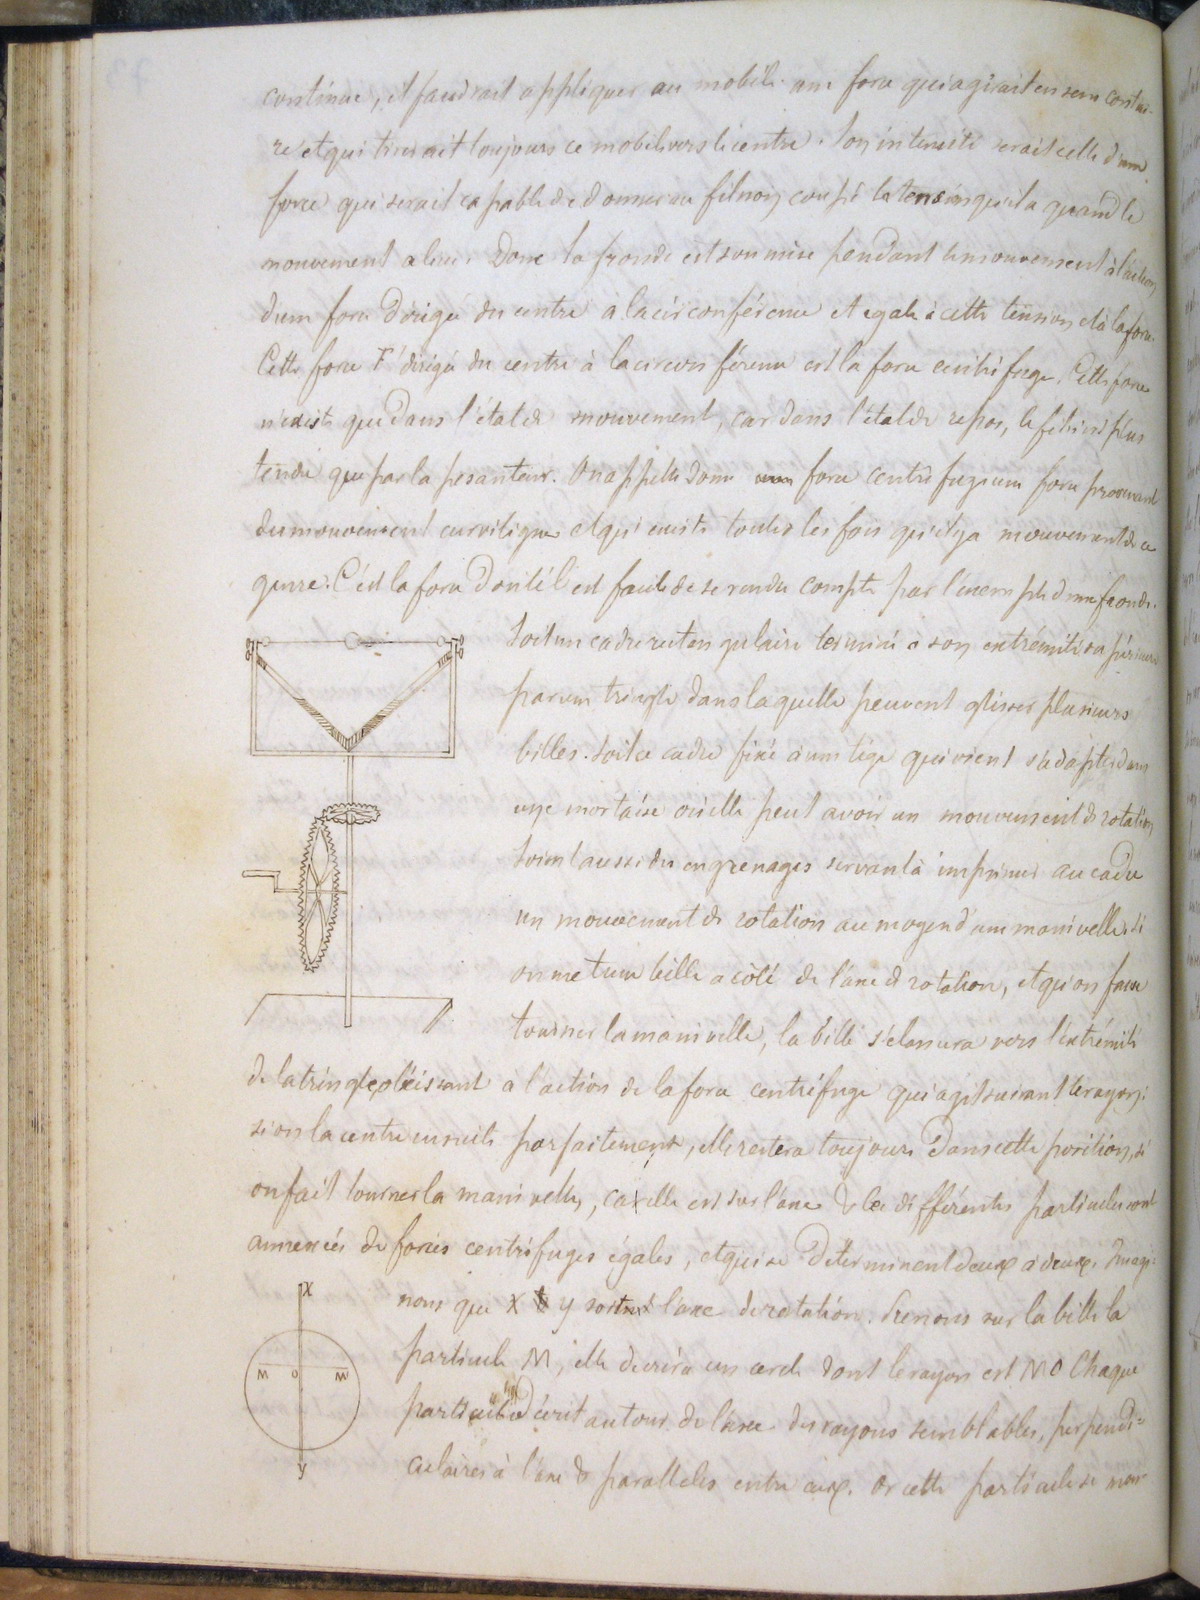 continue, il faudrait appliquer au mobile une force qui agirait en sens contrai-
re et qui tirerait toujours ce mobile vers le centre. Son intensité serait celle d'une
force qui serait capable de donner au fil non coupé la tension qu'il a quand le
mouvement a lieu. Donc la fronde est soumise pendant le mouvement à l'action
d'une force dirigée du centre à la circonférence et égale à cette tension et à la force.
Cette force F' dirigée du centre à la circonférence est la force centrifuge. Cette force
n'existe que dans l'état de mouvement, car dans l'état de repos, le fil n'est plus
tendu que par la pesanteur. On appelle donc force centrifuge une force provenant
du mouvement curviligne et qui existe toutes les fois qu'il y a mouvement de ce
genre. C'est la force dont il est facile de se rendre compte par l'exemple d'une fronde.
Soit un cadre rectangulaire terminé à son extrémité supérieure
par une tringle dans laquelle peuvent glisser plusieurs
billes. Soit ce cadre fixé à une tige qui vient s'adapter dans
une mortaise où elle peut avoir un mouvement de rotation
Soient aussi des engrenages servant à imprimer au cadre
un mouvement de rotation au moyen d'une manivelle. Si
on met une bille à côté de l'axe de rotation, et qu'on fasse
tourner la manivelle, la bille s'élancera vers l'extrémité
de la tringle obéissant à l'action de la force centrifuge qui agit suivant le rayon:
si on la centre ensuite parfaitement, elle restera toujours dans cette position, si
on fait tourner la manivelle, car elle est sur l'axe & les différentes particules sont
animées de forces centrifuges égales, et qui se déterminent deux à deux. Imagi-
nons que X & y soit l'axe de rotation. Prenons sur la bille la
particule M, elle décrira un cercle dont le rayon est MO Chaque
particule décrit autour de l'axe des rayons semblables, perpendi=
culaires à l'axe & parallèles entre eux. Or cette particule se mou-
X
M O M'
y